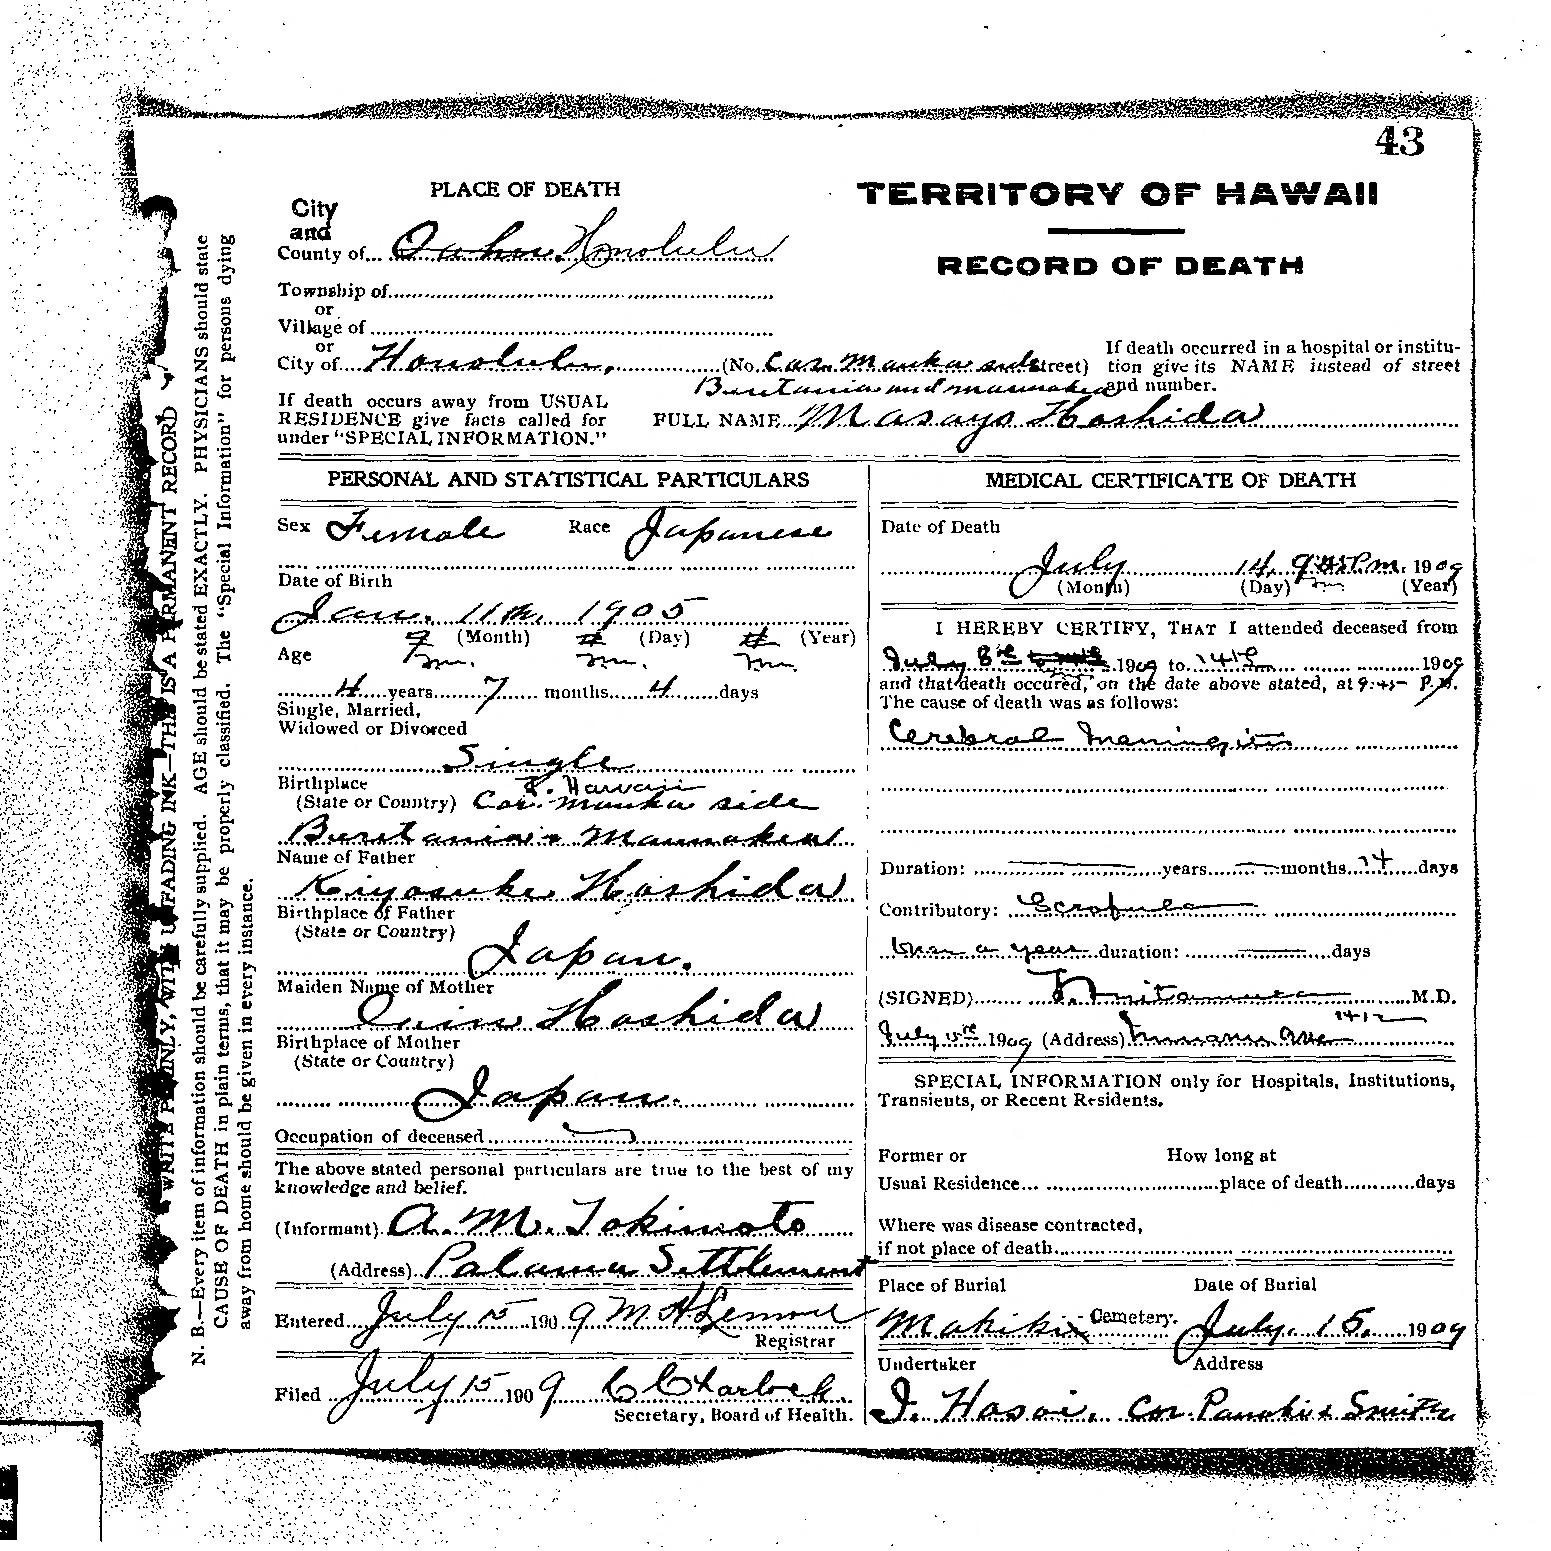 43
PLACE OF DEATH
TERRITORY OF HAWAII
RECORD OF DEATH
City
and
County of... Oahu. Honolulu
Township of
or
Village of
or
City of... Honolulu, (No. Cor. Mauka side Street)
Beretania and Maunakea
If death occurred in a hospital or institu-
tion give its NAME instead of street
and number.
If death occurs away from USUAL
RESIDENCE give facts called for
under "SPECIAL INFORMATION."
FULL NAME Masayo Hoshida
PERSONAL AND STATISTICAL PARTICULARS
Sex Female Race Japanese
Date of Birth
Jan. 11th, 1905
(Month) (Day) (Year)
Age
4 years 7 months 4 days
Single, Married,
Widowed or Divorced
Single
Birthplace
(State or Country) T. Hawaii
Cor. Mauka side
Beretania & Maunakea
Name of Father
Kiyosuke Hoshida
Birthplace of Father
(State or Country)
Japan.
Maiden Name of Mother
Hoshida
Birthplace of Mother
(State or Country)
Japan.
Occupation of deceased
The above stated personal particulars are true to the best of my
knowledge and belief.
(Informant) A. M. Tokimoto
(Address) Palama Settlement
Entered July 15 1909
Registrar
Filed July 15 1909
Secretary, Board of Health.
MEDICAL CERTIFICATE OF DEATH
Date of Death
July 14, 9:45 P.m. 1909
(Month) (Day) (Year)
I HEREBY CERTIFY, THAT I attended deceased from
July 8th 1909 to 14th 1909
and that death occured, on the date above stated, at 9:45 P.M.
The cause of death was as follows:
Cerebral Meningitis
Duration: years months 14 days
Contributory: Scrofula
than a year duration: days
(SIGNED) M.D.
July 15th 1909 (Address) 1412
Nuuanu Ave
SPECIAL INFORMATION only for Hospitals, Institutions,
Transients, or Recent Residents.
Former or How long at
Usual Residence... place of death days
Where was disease contracted,
if not place of death
Place of Burial Date of Burial
Makiki Cemetery. July. 15. 1909
Undertaker Address
I. Hosoi. Cor. Pauahi & Smith
WRITE PLAINLY, WITH UNFADING INK—THIS IS A PERMANENT RECORD
N. B.—Every item of information should be carefully supplied. AGE should be stated EXACTLY. PHYSICIANS should state
CAUSE OF DEATH in plain terms, that it may be properly classified. The "Special Information" for persons dying
away from home should be given in every instance.